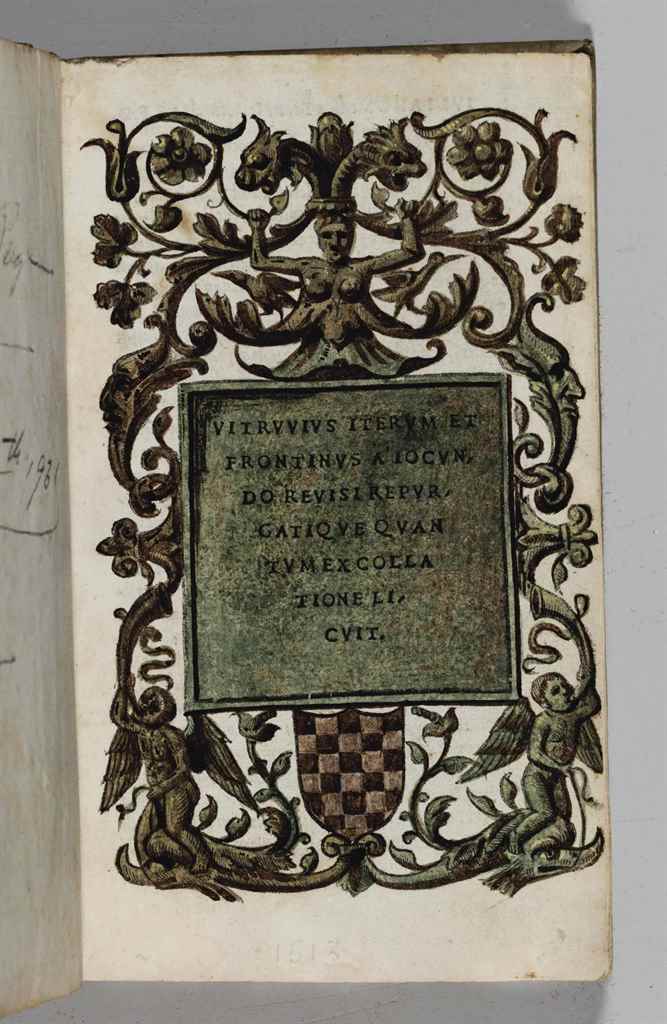 VITRVVIVS ITERVM ET
FRONTINVS A IOCVN,
DO REVISI REPVR,
GATIQVE QVAN
TVM EX COLLA
TIONE LI,
CVIT.
1513